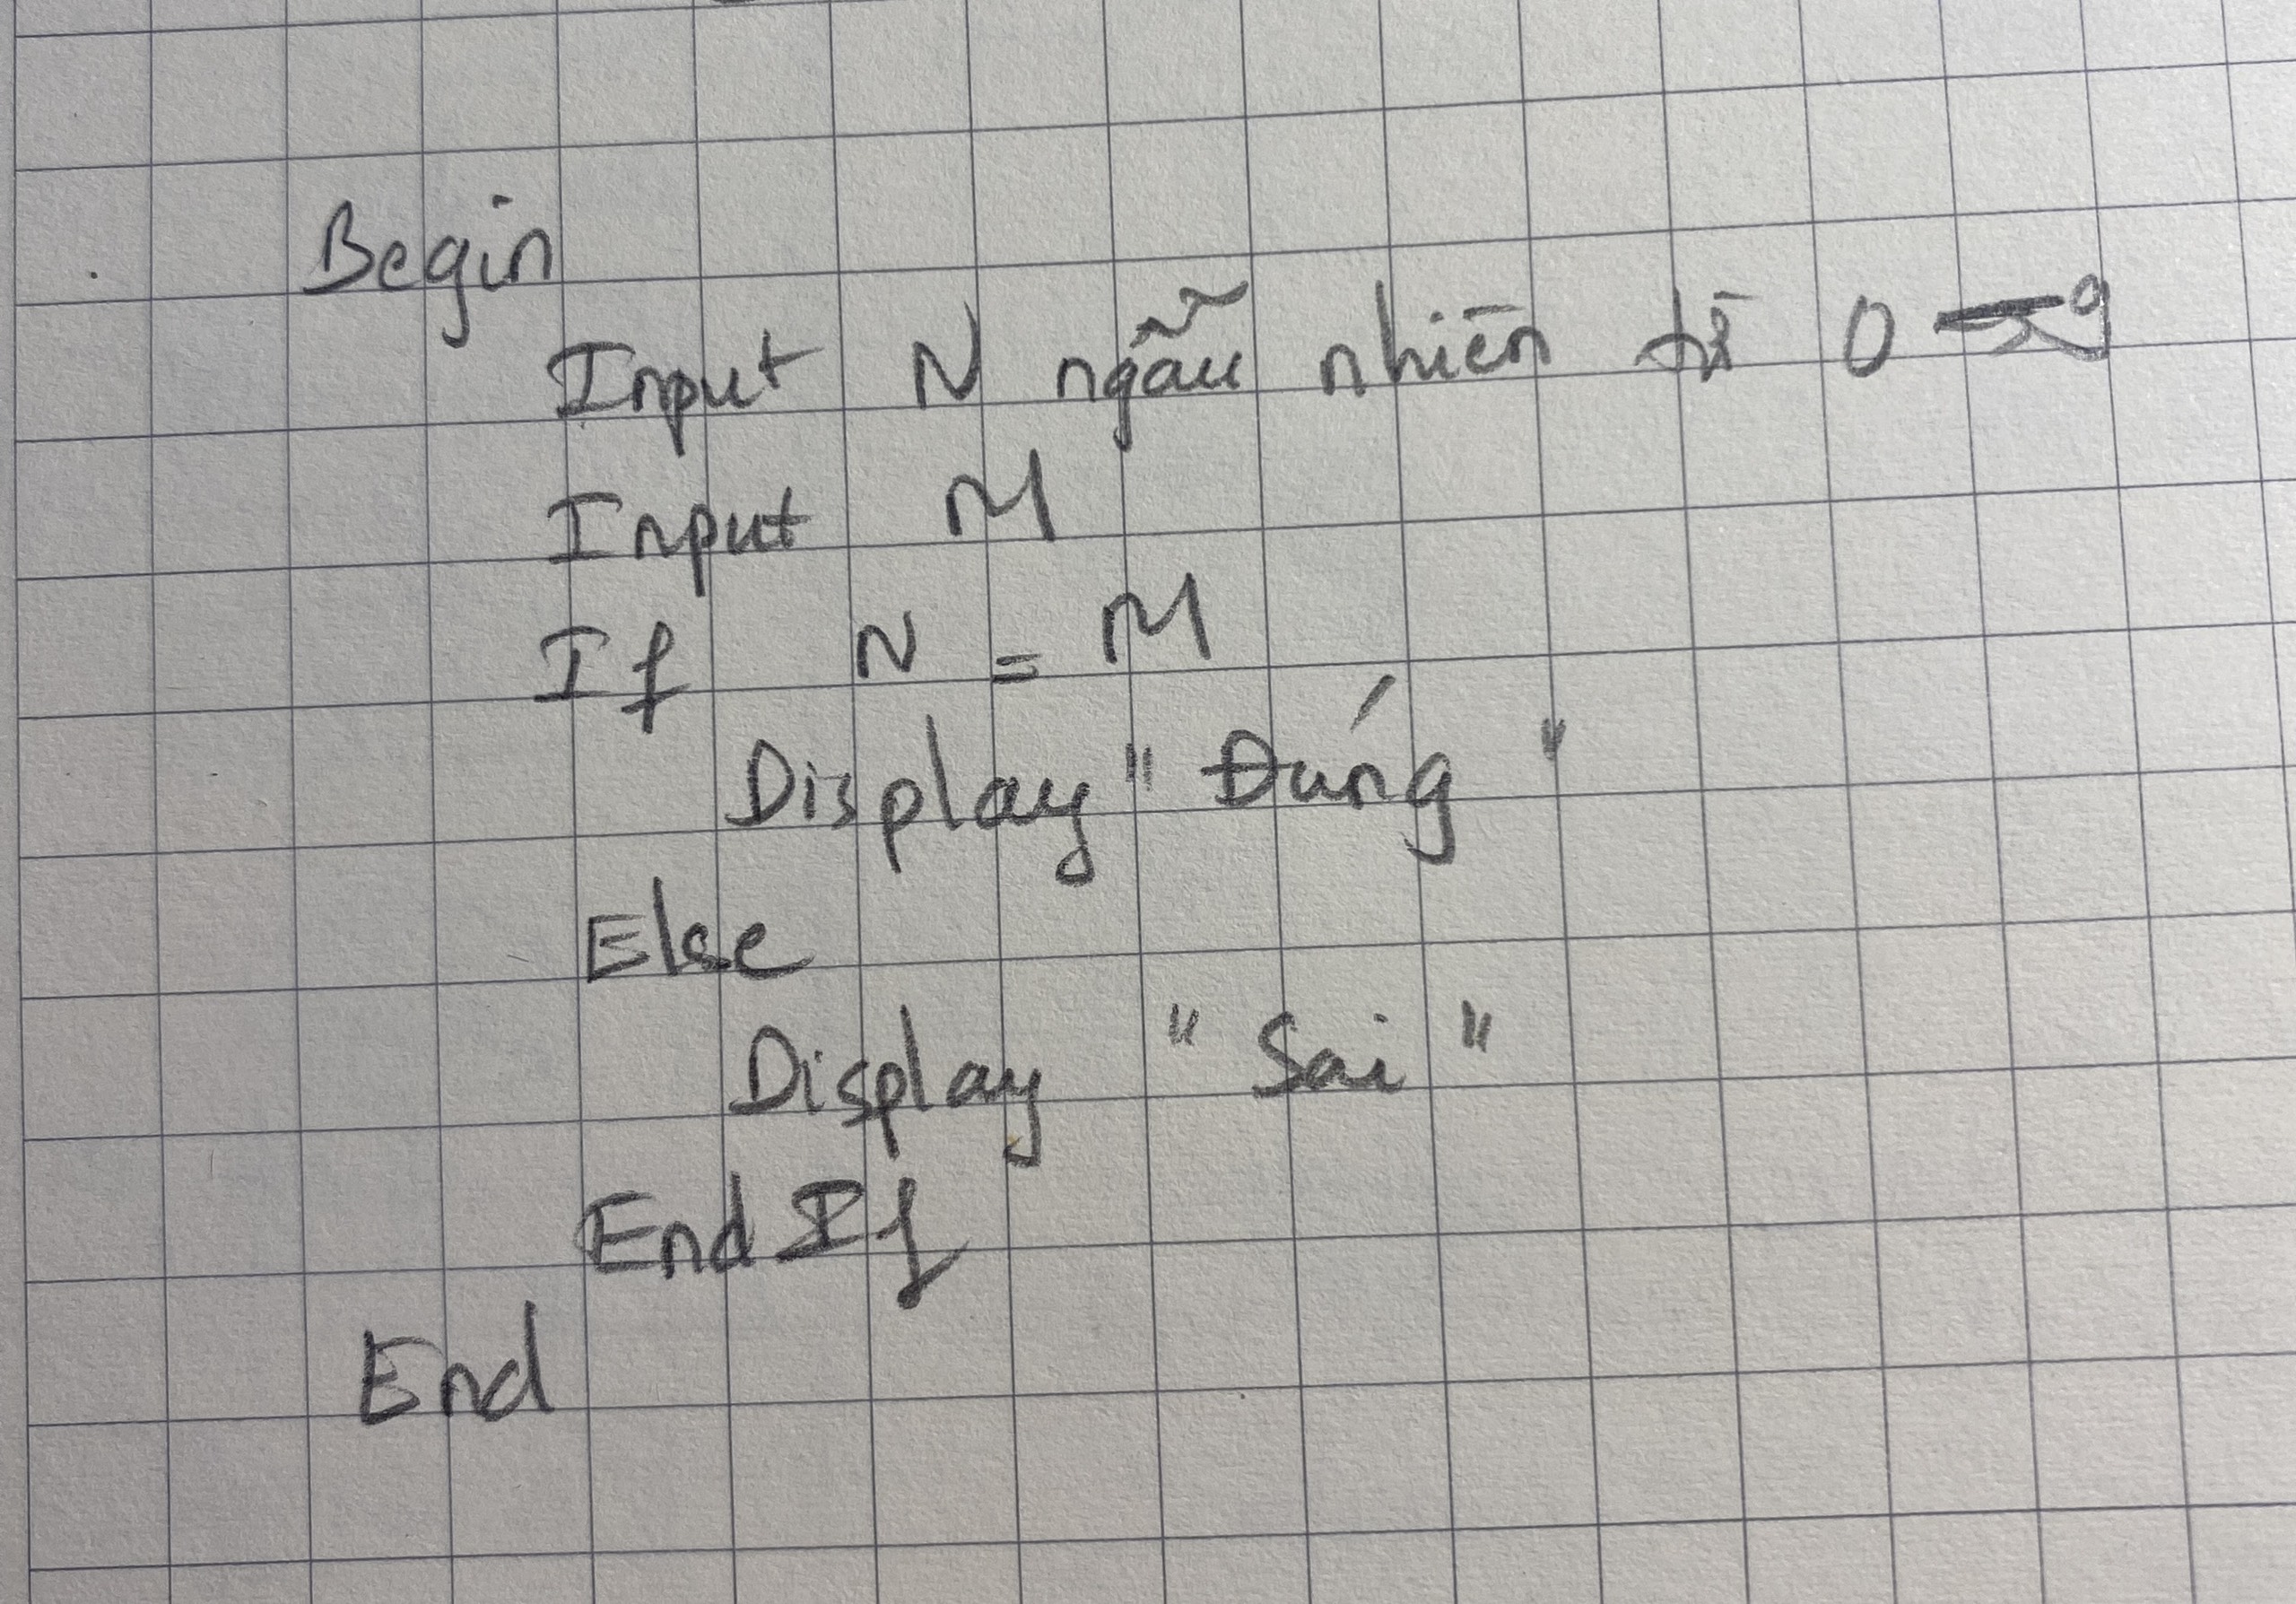 Begin
Input N ngẫu nhiên từ 0 → 9
Input M
If N = M
Display "Đúng"
Else
Display "Sai"
End If
End